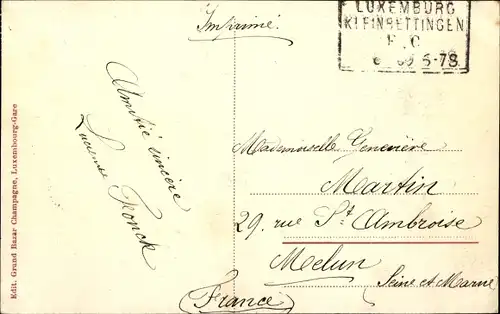 Imprimé.
LUXEMBURG
KLEINBETTINGEN
5-7S
Amitié sincère
Lucienne Kronck
Mademoiselle Geneviève
Martin
29. rue St Ambroise
Melun
Seine et Marne
France
Edit. Grand Bazar Champagne, Luxembourg-Gare